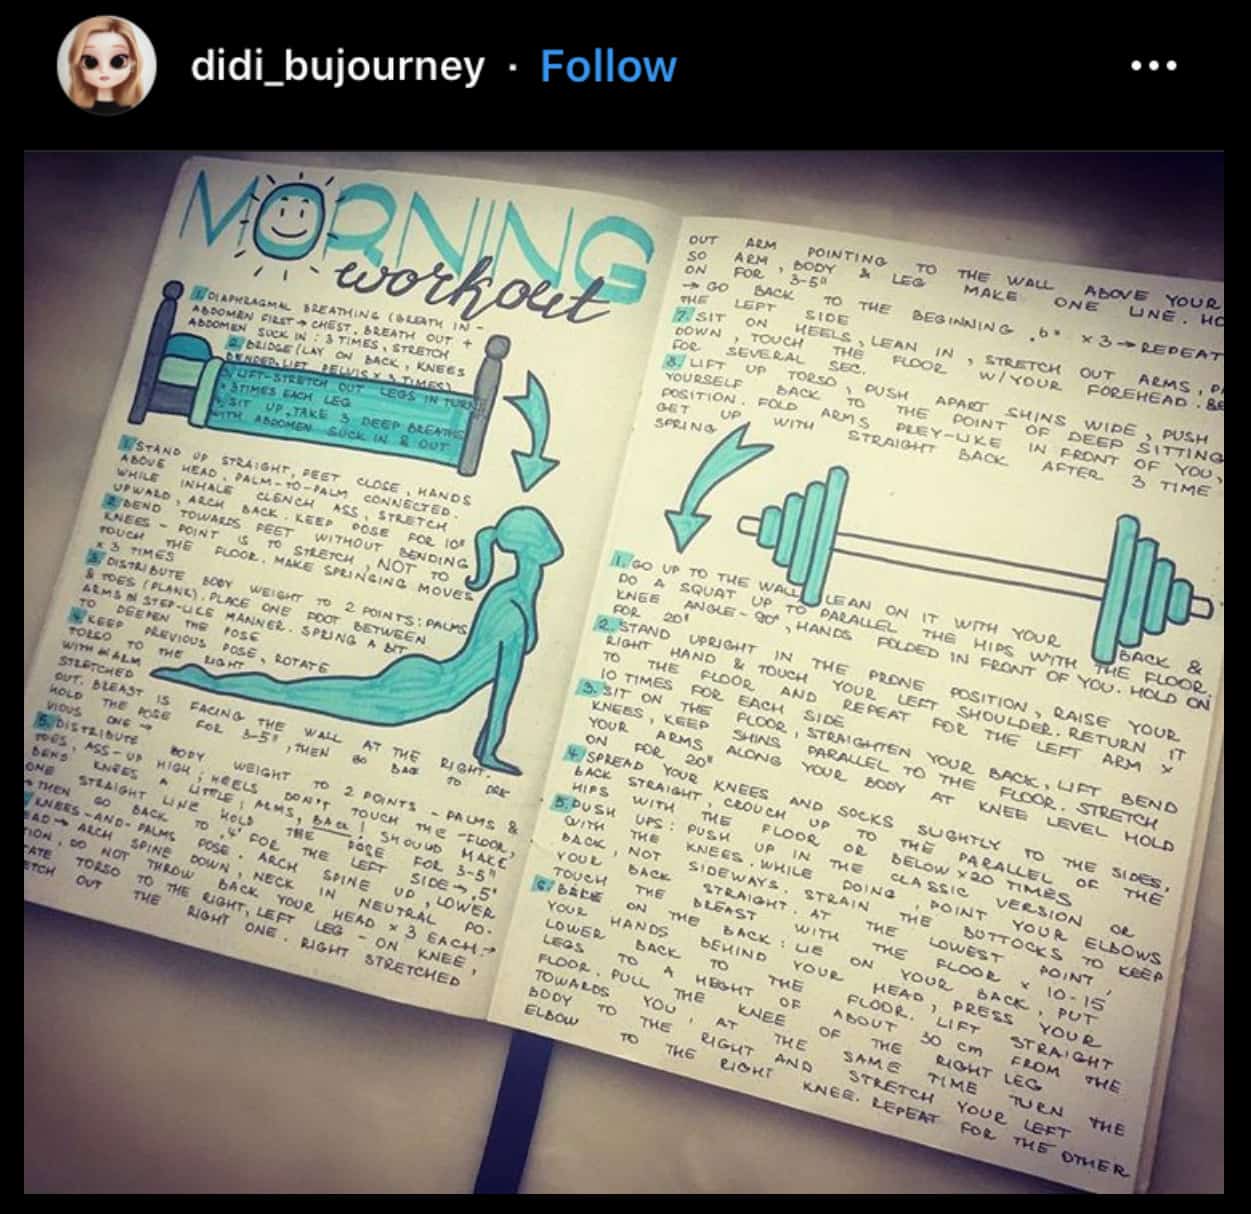 didi_bujourney · Follow
MORNING
workout
1. DIAPHRAGMAL BREATHING (BREATH IN -
ABDOMEN FIRST → CHEST, BREATH OUT +
ABDOMEN SUCK IN : 3 TIMES, STRETCH
2. BRIDGE (LAY ON BACK, KNEES
BENDED, LIFT PELVIS x 3 TIMES)
3. LIFT-STRETCH OUT LEGS IN TURN
x 3 TIMES EACH LEG
4. SIT UP, TAKE 3 DEEP BREATHS
WITH ABDOMEN SUCK IN & OUT
1. STAND UP STRAIGHT, FEET CLOSE, HANDS
ABOVE HEAD, PALM-TO-PALM CONNECTED.
WHILE INHALE CLENCH ASS, STRETCH
UPWARD, ARCH BACK. KEEP POSE FOR 10"
2. BEND TOWARDS FEET WITHOUT BENDING
KNEES - POINT IS TO STRETCH, NOT TO
TOUCH THE FLOOR. MAKE SPRINGING MOVES
x 3 TIMES
3. DISTRIBUTE BODY WEIGHT TO 2 POINTS: PALMS
& TOES (PLANK). PLACE ONE FOOT BETWEEN
ARMS IN STEP-LIKE MANNER. SPRING A BIT
TO DEEPEN THE POSE
4. KEEP PREVIOUS POSE, ROTATE
TORSO TO THE RIGHT
WITH ARM
STRETCHED
OUT. BREAST IS FACING THE WALL AT THE RIGHT.
HOLD THE POSE FOR 3-5", THEN GO BACK TO PRE
VIOUS ONE →
5. DISTRIBUTE BODY WEIGHT TO 2 POINTS - PALMS &
TOES, ASS-UP HIGH; HEELS DON'T TOUCH THE FLOOR,
BEND KNEES A LITTLE; ARMS, BACK SHOULD MAKE
ONE STRAIGHT LINE HOLD THE POSE FOR 3-5"
→ THEN GO BACK TO "4" FOR THE LEFT SIDE → "5"
KNEES-AND-PALMS POSE. ARCH SPINE UP, LOWER
EAD → ARCH SPINE DOWN, NECK IN NEUTRAL PO-
TION, DO NOT THROW BACK YOUR HEAD x 3 EACH →
ATE TORSO TO THE RIGHT, LEFT LEG - ON KNEE,
ETCH OUT THE RIGHT ONE. RIGHT STRETCHED
OUT ARM POINTING TO THE WALL ABOVE YOUR
SO ARM, BODY & LEG MAKE ONE LINE. HO
ON FOR 3-5"
→ GO BACK TO THE BEGINNING "6" x 3 → REPEAT
THE LEFT SIDE
7. SIT ON HEELS, LEAN IN, STRETCH OUT ARMS, PA
DOWN, TOUCH THE FLOOR W/YOUR FOREHEAD. BE
FOR SEVERAL SEC.
8. LIFT UP TORSO, PUSH APART SHINS WIDE, PUSH
YOURSELF BACK TO THE POINT OF DEEP SITTING
POSITION. FOLD ARMS PREY-LIKE IN FRONT OF YOU,
GET UP WITH STRAIGHT BACK AFTER 3 TIME
SPRING
1. GO UP TO THE WALL, LEAN ON IT WITH YOUR BACK &
DO A SQUAT UP TO PARALLEL THE HIPS WITH THE FLOOR.
KNEE ANGLE - 90°, HANDS FOLDED IN FRONT OF YOU. HOLD ON
FOR 20"
2. STAND UPRIGHT IN THE PRONE POSITION, RAISE YOUR
RIGHT HAND & TOUCH YOUR LEFT SHOULDER. RETURN IT
TO THE FLOOR AND REPEAT FOR THE LEFT ARM x
10 TIMES FOR EACH SIDE
3. SIT ON THE FLOOR, STRAIGHTEN YOUR BACK, LIFT BEND
KNEES, KEEP SHINS PARALLEL TO THE FLOOR. STRETCH
YOUR ARMS ALONG YOUR BODY AT KNEE LEVEL HOLD
ON FOR 20"
4. SPREAD YOUR KNEES AND SOCKS SLIGHTLY TO THE SIDES,
BACK STRAIGHT, CROUCH UP TO THE PARALLEL OF THE
HIPS WITH THE FLOOR OR BELOW x20 TIMES
5. PUSH UPS: PUSH UP IN THE CLASSIC VERSION OR
WITH THE KNEES. WHILE DOING, POINT YOUR ELBOWS
BACK, NOT SIDEWAYS. STRAIN THE BUTTOCKS TO KEEP
YOUR BACK STRAIGHT. AT THE LOWEST POINT,
TOUCH THE BREAST WITH THE FLOOR x 10-15
6. BIKE ON THE BACK: LIE ON YOUR BACK, PUT
YOUR HANDS BEHIND YOUR HEAD, PRESS YOUR
LOWER BACK TO THE FLOOR. LIFT STRAIGHT
LEGS TO A HEIGHT OF ABOUT 30 cm FROM THE
FLOOR. PULL THE KNEE OF THE RIGHT LEG
TOWARDS YOU, AT THE SAME TIME TURN THE
BODY TO THE RIGHT AND STRETCH YOUR LEFT
ELBOW TO THE RIGHT KNEE. REPEAT FOR THE OTHER